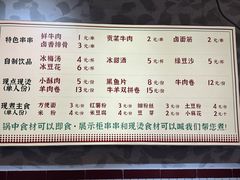 特色串串 鲜牛肉 1元/串 贡菜牛肉 2元/串 卤面筋 2元/串
卤香排骨 3元/串
自制饮品 冰梅汤 4元/杯 冰甜酒 5元/杯 绿豆沙 5元/杯
冰豆花 6元/杯
现点现烫 小酥肉 5元/份 黑鱼片 8元/份 牛肉卷 12元/份
(单人份) 羊肉卷 10元/份 牛羊双拼卷 12元/份
现煮主食 方便面 3元/份 红薯粉 3元/份 细粉丝 3元/份 土豆粉 4元/份
(单人份) 米粉 4元/份 米豆腐 4元/份 豆芽 2元/份 小麻花 2元/份
锅中食材可以即食·展示柜串串和现烫食材可以喊我们帮您煮!